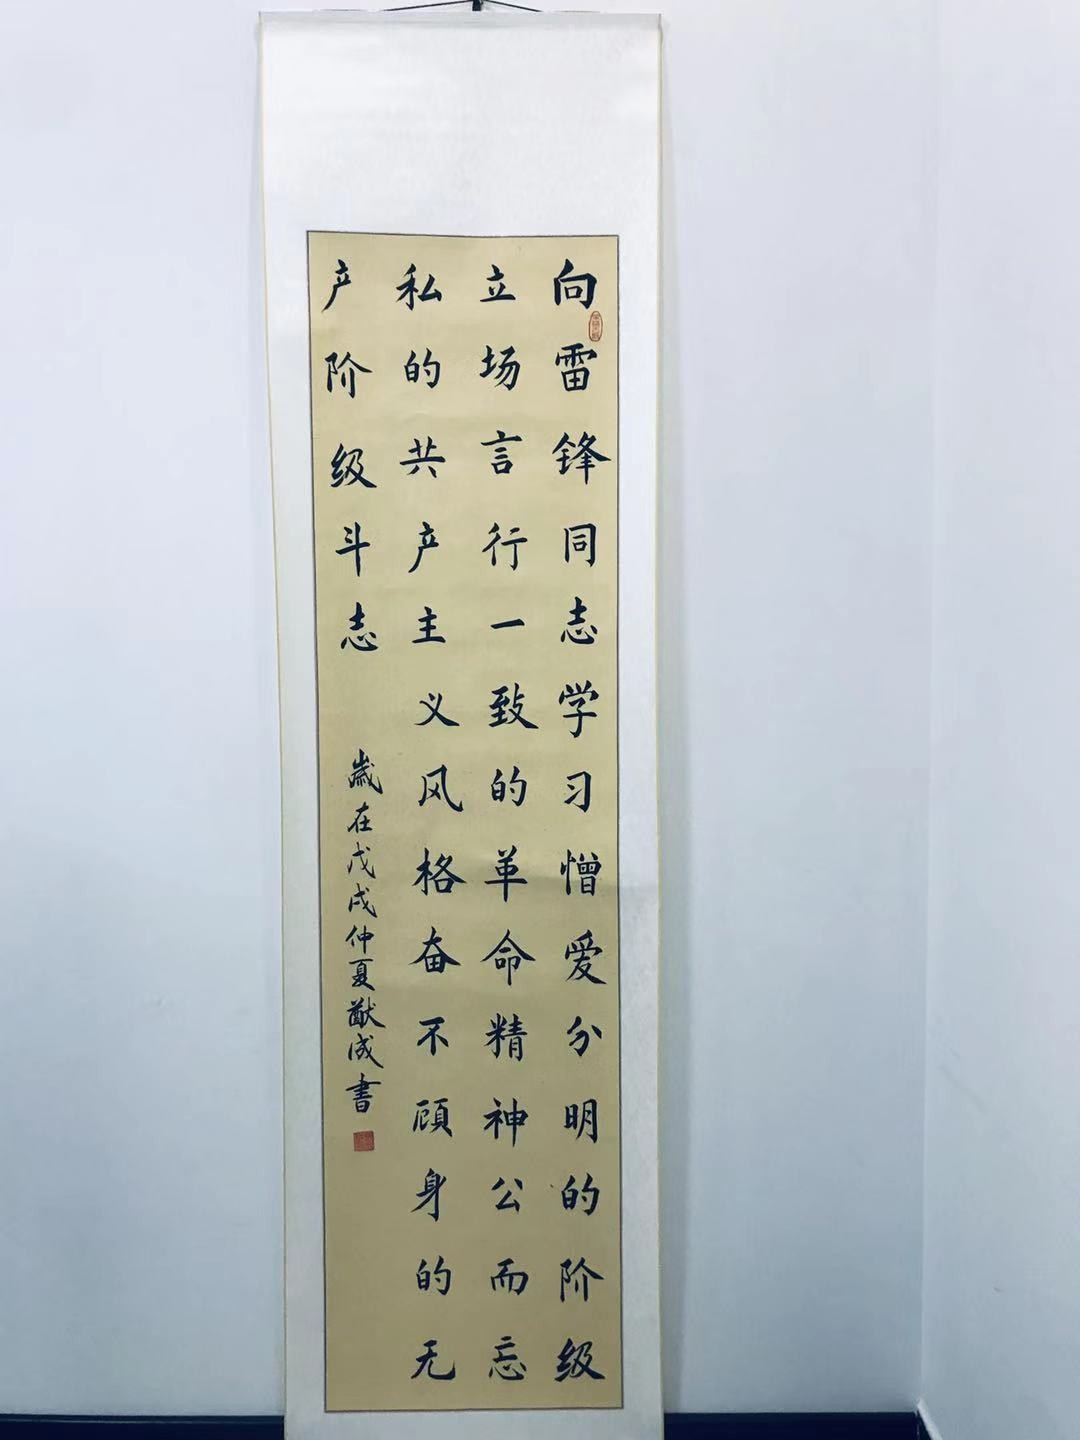 向雷锋同志学习憎爱分明的阶级
立场言行一致的革命精神公而忘
私的共产主义风格奋不顾身的无
产阶级斗志
歲在戊戌仲夏猷成书